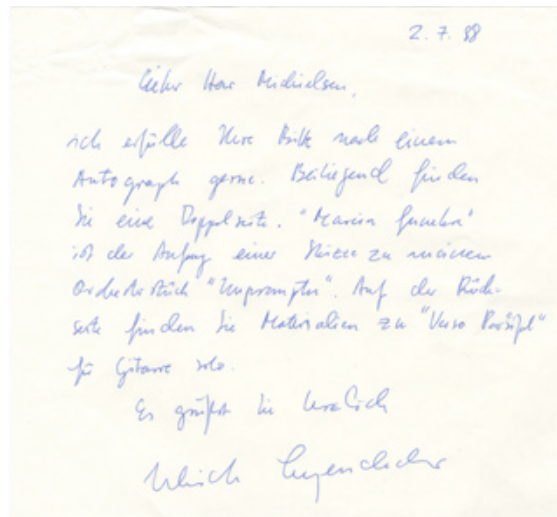 2. 7. 88
Lieber Herr Michielsen,
ich erfülle Ihre Bitte nach einem
Autograph gerne. Beiliegend finden
Sie eine Doppelseite. "Marcia funebre"
ist der Anfang einer Skizze zu meinem
Orchesterstück "Impromptu". Auf der Rück-
seite finden Sie Materialien zu "Verso Parsifal"
für Gitarre solo.
Es grüßt Sie herzlich
Ulrich